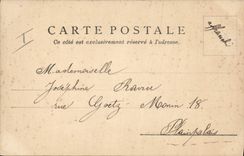 CARTE POSTALE
Ce côté est exclusivement réservé à l'adresse.
I
Mademoiselle
Joséphine
rue Goetz-Monin 18
Plainpalais